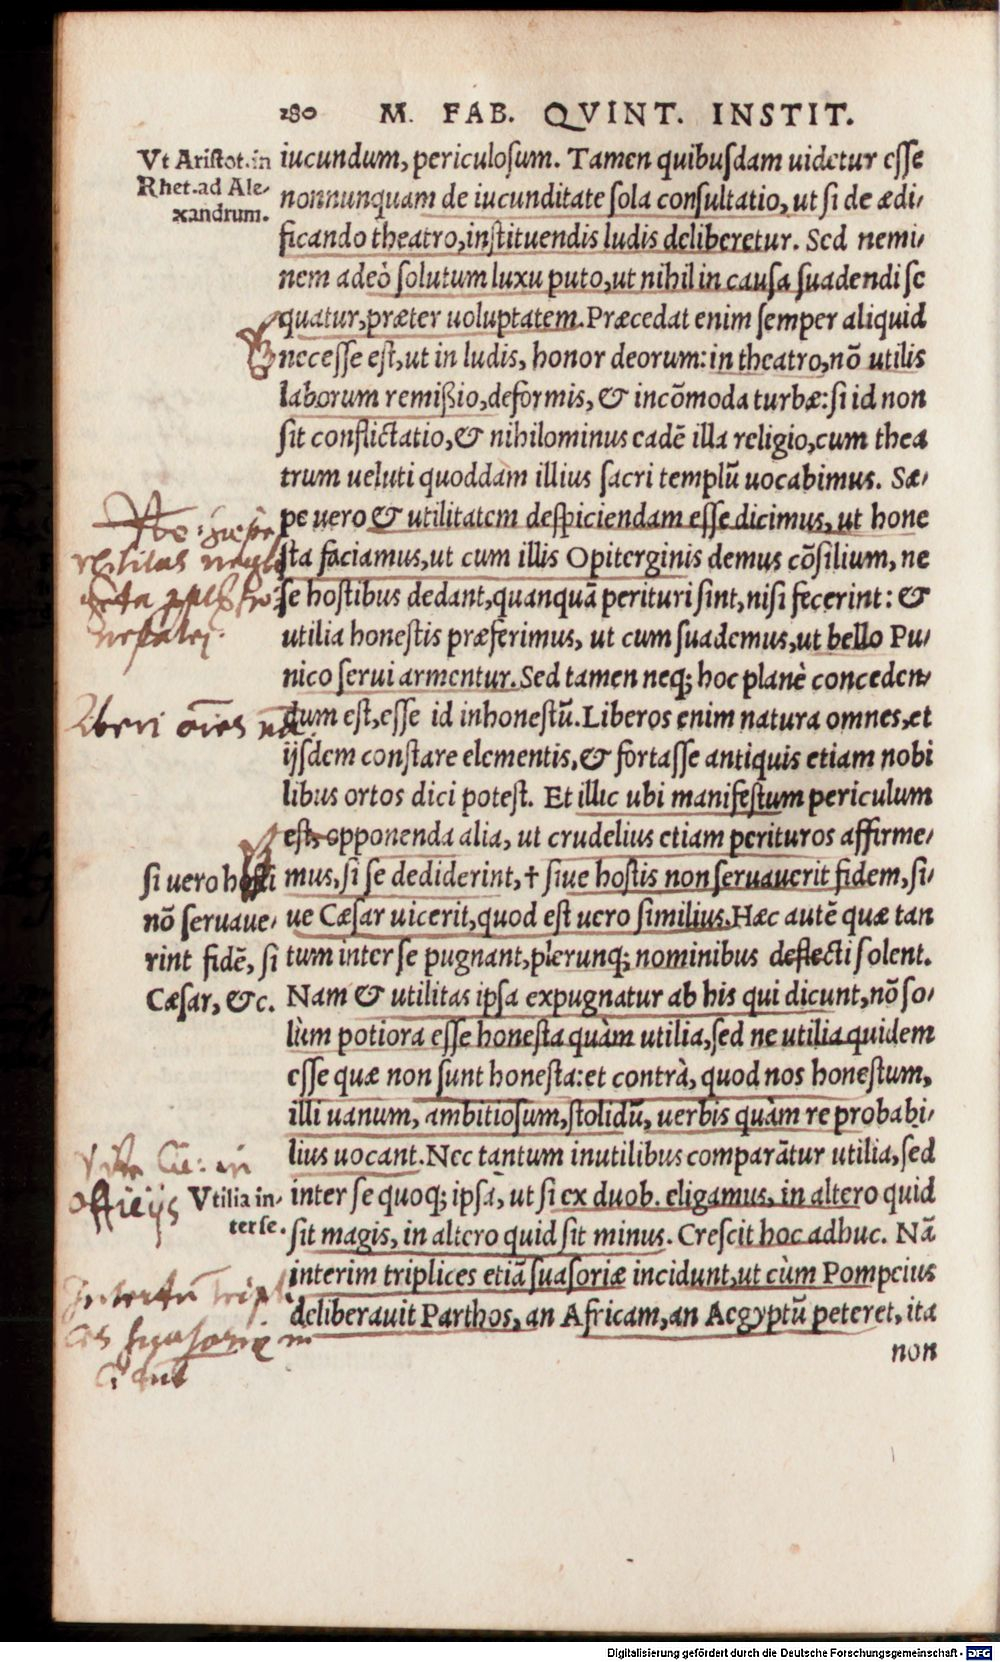 280 M. FAB. QVINT. INSTIT.
Vt Aristot. in
Rhet. ad Ale-
xandrum.
iucundum, periculosum. Tamen quibusdam uidetur esse
nonnunquam de iucunditate sola consultatio, ut si de ædi-
ficando theatro, instituendis ludis deliberetur. Sed nemi-
nem adeò solutum luxu puto, ut nihil in causa suadendi se
quatur, præter uoluptatem. Præcedat enim semper aliquid
necesse est, ut in ludis, honor deorum: in theatro, nō utilis
laborum remißio, deformis, & incōmoda turbæ: si id non
sit conflictatio, & nihilominus eadē illa religio, cum thea
trum ueluti quoddam illius sacri templū uocabimus. Sæ-
pe uero & utilitatem despiciendam esse dicimus, ut hone
sta faciamus, ut cum illis Opiterginis demus cōsilium, ne
se hostibus dedant, quanquā perituri sint, nisi fecerint: &
utilia honestis præferimus, ut cum suademus, ut bello Pu-
nico serui armentur. Sed tamen neq; hoc planè conceden-
Liberi oīes
dum est, esse id inhonestū. Liberos enim natura omnes, et
ijsdem constare elementis, & fortasse antiquis etiam nobi
libus ortos dici potest. Et illic ubi manifestum periculum
est, opponenda alia, ut crudelius etiam perituros affirme-
mus, si se dediderint, † siue hostis non seruauerit fidem, si-
ue Cæsar uicerit, quod est uero similius. Hæc autē quæ tan
tum inter se pugnant, plerunq; nominibus deflecti solent.
si uero hosti
nō seruaue-
rint fidē, si
Cæsar, &c.
Nam & utilitas ipsa expugnatur ab his qui dicunt, nō so-
lùm potiora esse honesta quàm utilia, sed ne utilia quidem
esse quæ non sunt honesta: et contrà, quod nos honestum,
illi uanum, ambitiosum, stolidū, uerbis quàm re probabi-
lius uocant. Nec tantum inutilibus comparātur utilia, sed
in
officijs
Vtilia in-
ter se.
inter se quoq; ipsa, ut si ex duob. eligamus, in altero quid
sit magis, in altero quid sit minus. Crescit hoc adhuc. Nā
interim triplices etiā suasoriæ incidunt, ut cùm Pompeius
deliberauit Parthos, an Africam, an Aegyptū peteret, ita
non
Digitalisierung gefördert durch die Deutsche Forschungsgemeinschaft - DFG